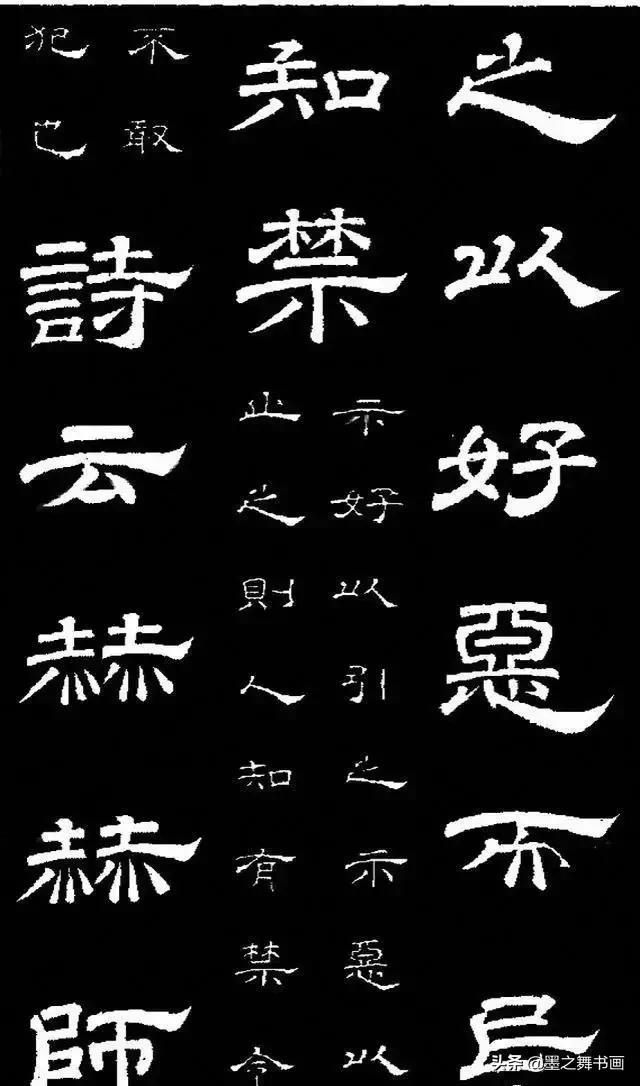 之以好惡而民
知禁
示好以引之示惡以
止之則人知有禁令
不敢
犯也
詩云赫赫師
头条 @墨之舞书画